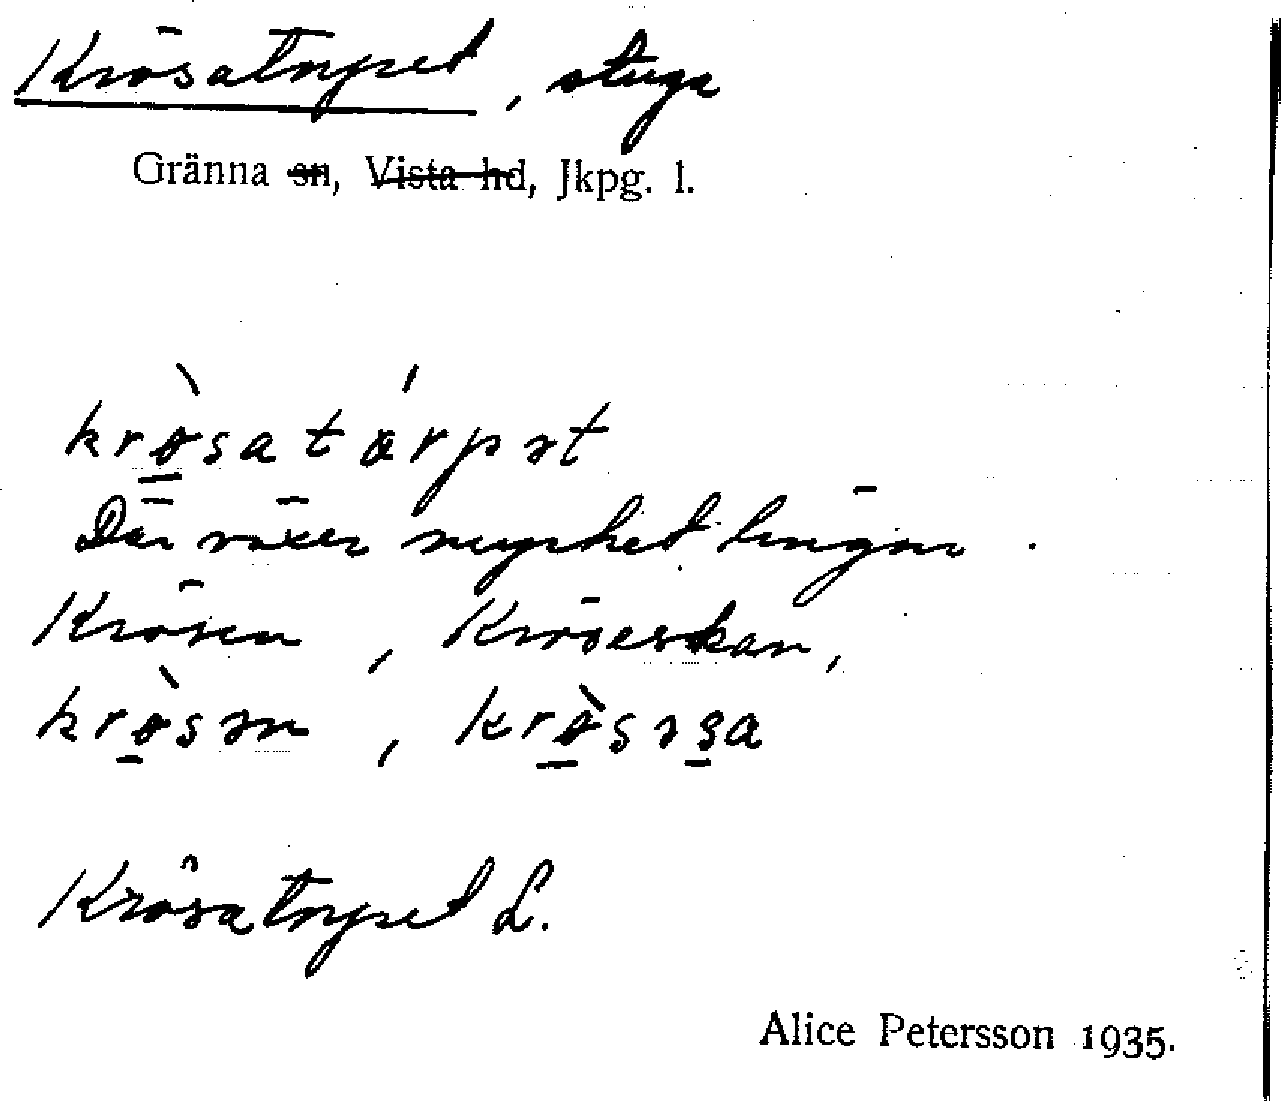 Krösatorpet, stuga
Gränna sn, Vista hd, Jkpg. l.
krø̀satǿrpət
Där växer mycket lingon.
Krösen, Kröseskan,
krø̀sən, krø̀səsa
Krösatorpet L.
Alice Petersson 1935.